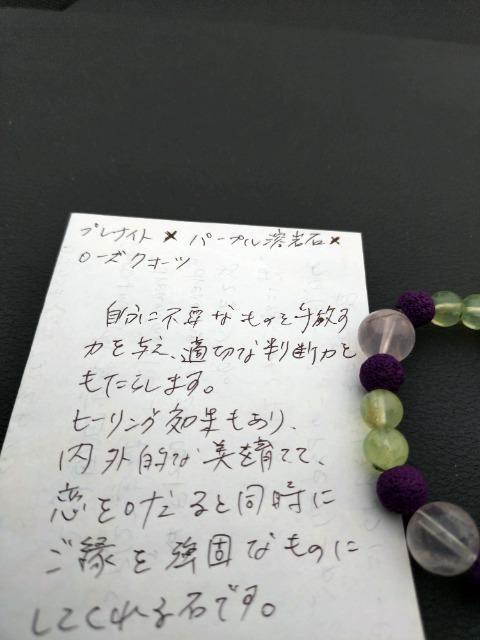 プレナイト × パープル溶岩石×
ローズクォーツ
自分に不要なものを手放す
力を与え、適切な判断力を
もたらします。
ヒーリング効果もあり、
内外的な美を育てて、
恋を叶だると同時に
ご縁を強固なものに
してくれる石です。